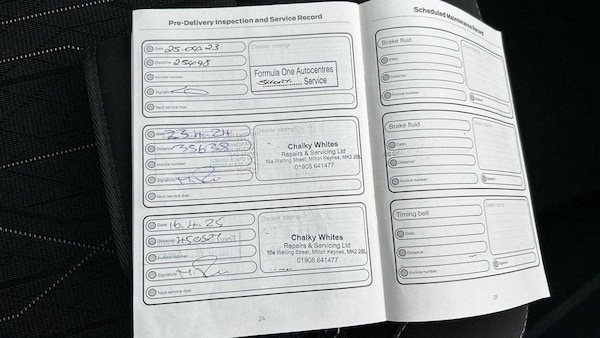 Pre-Delivery Inspection and Service Record
Date:
Distance:
Invoice number:
Signature:
Next service due:
Dealer stamp:
Formula One Autocentres
Service
Date: 23.4.24
Distance: 35638
Invoice number:
Signature:
Next service due:
Dealer stamp:
Chalky Whites
Repairs & Servicing Ltd
16a Watling Street, Milton Keynes, MK2 2BL
01908 641477
Date: 16.4.25
Distance:
Invoice number:
Signature:
Next service due:
Dealer stamp:
Chalky Whites
Repairs & Servicing Ltd
16a Watling Street, Milton Keynes, MK2 2BL
01908 641477
24
Scheduled Maintenance Record
Brake fluid
Date:
Distance:
Invoice number:
Brake fluid
Date:
Distance:
Invoice number:
Timing belt
Date:
Distance:
Invoice number:
25